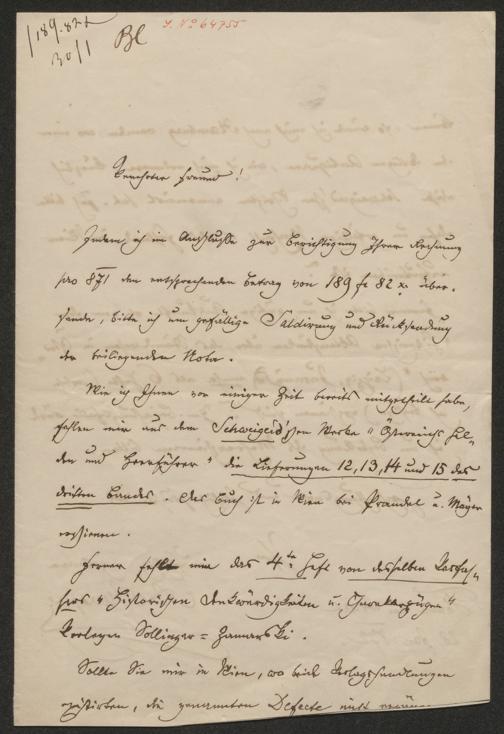 189.82x
30/1
Bl
I. No 64755
Verehrter Freund!
Indem ich im Anschlusse zur Berichtigung Ihrer Rechnung
pro 871 den entsprechenden Betrag von 189 fl 82 x. über-
sende, bitte ich um gefällige Saldirung und Rücksendung
der beiliegenden Nota.
Wie ich Ihnen vor einiger Zeit bereits mitgetheilt habe,
fehlen mir aus dem Schweigerd'schen Werke "Östereichs Hel-
den und Heerführer" die Lieferungen 12, 13, 14 und 15 des
dritten Bandes. Das Buch ist in Wien bei Prandel u. Mayer
erschienen.
Ferner fehlt mir das 4te Heft von desselben Verfas-
sers "Historischen Denkwürdigkeiten u. Charakterzügen"
Verlegen Sollinger = Zamarski.
Sollte Sie mir in Wien, wo beide Verlagshandlungen
existirten, die genannten Defecte nicht